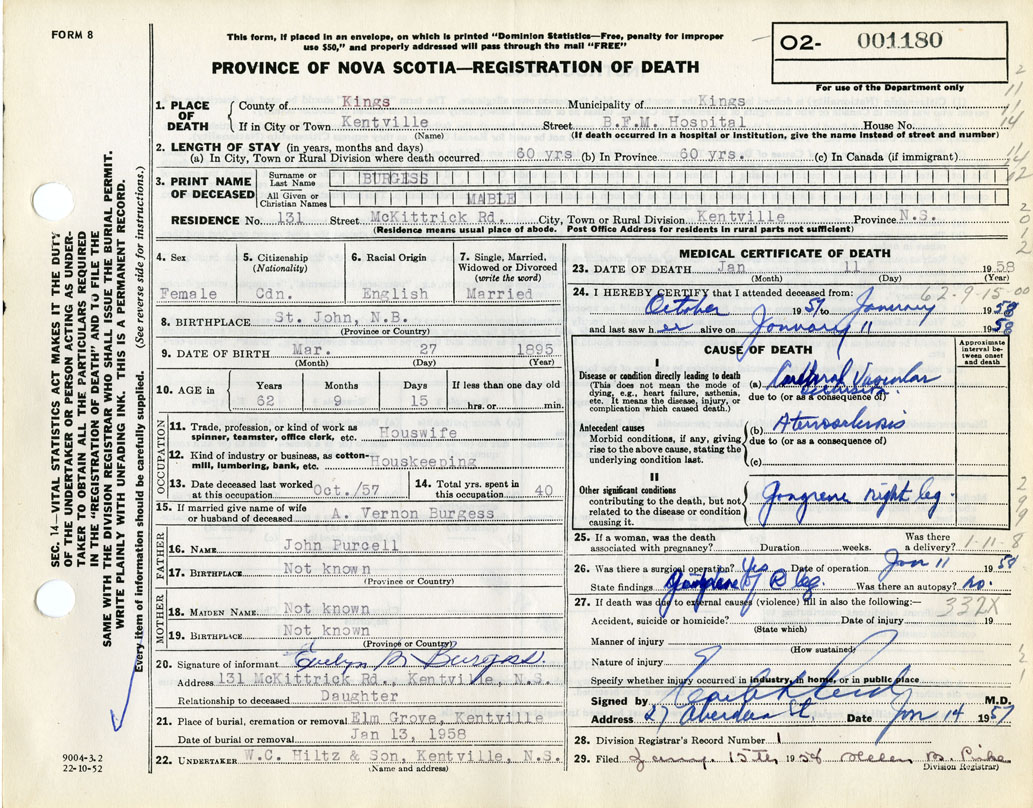 FORM 8
This form, if placed in an envelope, on which is printed "Dominion Statistics—Free, penalty for improper
use $50," and properly addressed will pass through the mail "FREE"
PROVINCE OF NOVA SCOTIA—REGISTRATION OF DEATH
O2- 001180
For use of the Department only
1. PLACE OF DEATH
County of Kings Municipality of Kings
If in City or Town Kentville Street B.F.M. Hospital House No.
(Name) (If death occurred in a hospital or institution, give the name instead of street and number)
2. LENGTH OF STAY (in years, months and days)
(a) In City, Town or Rural Division where death occurred 60 yrs (b) In Province 60 yrs. (c) In Canada (if immigrant)
3. PRINT NAME OF DECEASED
Surname or Last Name BURGESS
All Given or Christian Names MABLE
RESIDENCE No. 131 Street McKittrick Rd. City, Town or Rural Division Kentville Province N.S.
(Residence means usual place of abode. Post Office Address for residents in rural parts not sufficient)
4. Sex Female
5. Citizenship (Nationality) Cdn.
6. Racial Origin English
7. Single, Married, Widowed or Divorced (write the word) Married
8. BIRTHPLACE St. John, N.B.
(Province or Country)
9. DATE OF BIRTH Mar. 27 1895
(Month) (Day) (Year)
10. AGE in Years 62 Months 9 Days 15 If less than one day old hrs. or min.
OCCUPATION
11. Trade, profession, or kind of work as
spinner, teamster, office clerk, etc. Houswife
12. Kind of industry or business, as cotton-
mill, lumbering, bank, etc. Houskeeping
13. Date deceased last worked at this occupation Oct./57
14. Total yrs. spent in this occupation 40
15. If married give name of wife
or husband of deceased A. Vernon Burgess
FATHER
16. NAME John Purcell
17. BIRTHPLACE Not known
(Province or Country)
MOTHER
18. MAIDEN NAME Not known
19. BIRTHPLACE Not known
(Province or Country)
20. Signature of informant Evelyn M Burgess.
Address 131 McKittrick Rd., Kentville, N.S.
Relationship to deceased Daughter
21. Place of burial, cremation or removal Elm Grove, Kentville
Date of burial or removal Jan 13, 1958
22. UNDERTAKER W.C. Hiltz & Son, Kentville, N.S.
(Name and address)
MEDICAL CERTIFICATE OF DEATH
23. DATE OF DEATH Jan 11 1958
(Month) (Day) (Year)
24. I HEREBY CERTIFY that I attended deceased from: 62-9-15-00
October 1957 to January 1958
and last saw h er alive on January 11 1958
CAUSE OF DEATH
Approximate interval between onset and death
I
Disease or condition directly leading to death
(This does not mean the mode of
dying, e.g., heart failure, asthenia,
etc. It means the disease, injury, or
complication which caused death.)
(a) Cerebral Vascular
due to (or as a consequence of)
Antecedent causes
Morbid conditions, if any, giving
rise to the above cause, stating the
underlying condition last.
(b) Aterosclerosis
due to (or as a consequence of)
(c)
II
Other significant conditions
contributing to the death, but not
related to the disease or condition
causing it.
Gangrene right leg.
25. If a woman, was the death
associated with pregnancy? Duration weeks. Was there a delivery? 1-11-8
26. Was there a surgical operation? Yes Date of operation Jan 11 1958
State findings Gangrene of R leg Was there an autopsy? no.
27. If death was due to external causes (violence) fill in also the following:— 332X
Accident, suicide or homicide? Date of injury 19
(State which)
Manner of injury
(How sustained)
Nature of injury
Specify whether injury occurred in industry, in home, or in public place
Signed by M.D.
Address 27 Aberdeen St, Date Jan 14 1957
28. Division Registrar's Record Number 1
29. Filed Jany. 15th 1958 Helen M. Pike
Division Registrar)
SEC. 14—VITAL STATISTICS ACT MAKES IT THE DUTY
OF THE UNDERTAKER OR PERSON ACTING AS UNDER-
TAKER TO OBTAIN ALL THE PARTICULARS REQUIRED
IN THE "REGISTRATION OF DEATH" AND TO FILE THE
SAME WITH THE DIVISION REGISTRAR WHO SHALL ISSUE THE BURIAL PERMIT.
WRITE PLAINLY WITH UNFADING INK. THIS IS A PERMANENT RECORD.
Every item of information should be carefully supplied. (See reverse side for instructions.)
9004-3.2
22-10-52